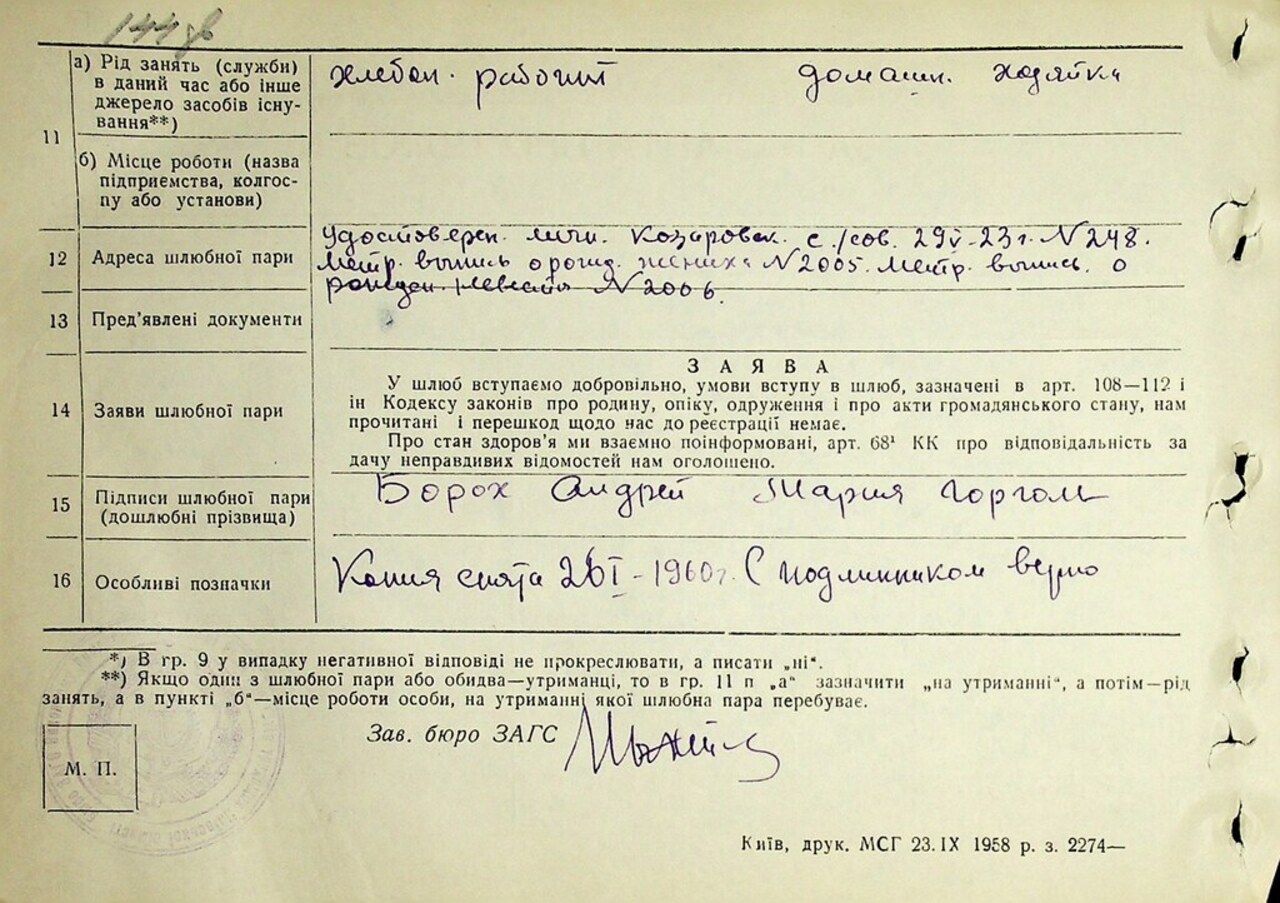 144
11
а) Рід занять (служби)
в даний час або інше
джерело засобів існу-
вання**)
хлебоп. рабочий
домашн. хозяйка
б) Місце роботи (назва
підприємства, колгос-
пу або установи)
12
Адреса шлюбної пари
Удостоверен. личн. Козаровск. с/сов. 29/V-23г. N 248.
Метр. выпись о рожд. жениха N 2005. Метр. выпись. о
рожден. невесты N 2006.
13
Пред'явлені документи
14
Заяви шлюбної пари
ЗАЯВА
У шлюб вступаємо добровільно, умови вступу в шлюб, зазначені в арт. 108—112 і
ін Кодексу законів про родину, опіку, одруження і про акти громадянського стану, нам
прочитані і перешкод щодо нас до реєстрації немає.
Про стан здоров'я ми взаємно поінформовані, арт. 68¹ КК про відповідальність за
дачу неправдивих відомостей нам оголошено.
15
Підписи шлюбної пари
(дошлюбні прізвища)
Борох Андрей Мария Горголь
16
Особливі позначки
Копия снята 26/I-1960г. С подлинником верно
*) В гр. 9 у випадку негативної відповіді не прокреслювати, а писати „ні“.
**) Якщо один з шлюбної пари або обидва—утриманці, то в гр. 11 п „а“ зазначити „на утриманні“, а потім—рід
занять, а в пункті „б“—місце роботи особи, на утриманні якої шлюбна пара перебуває.
Зав. бюро ЗАГС
М. П.
Київ, друк. МСГ 23.IX 1958 р. з. 2274—